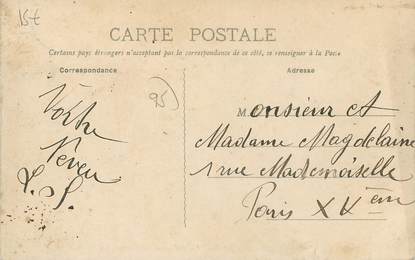 15€
CARTE POSTALE
Certains pays étrangers n'acceptant pas la correspondance de ce côté, se renseigner à la Poste
Correspondance
Adresse
95)
Votre
Neveu
L. S.
Monsieur et
Madame Magdelaine
1 rue Mademoiselle
Paris XVème